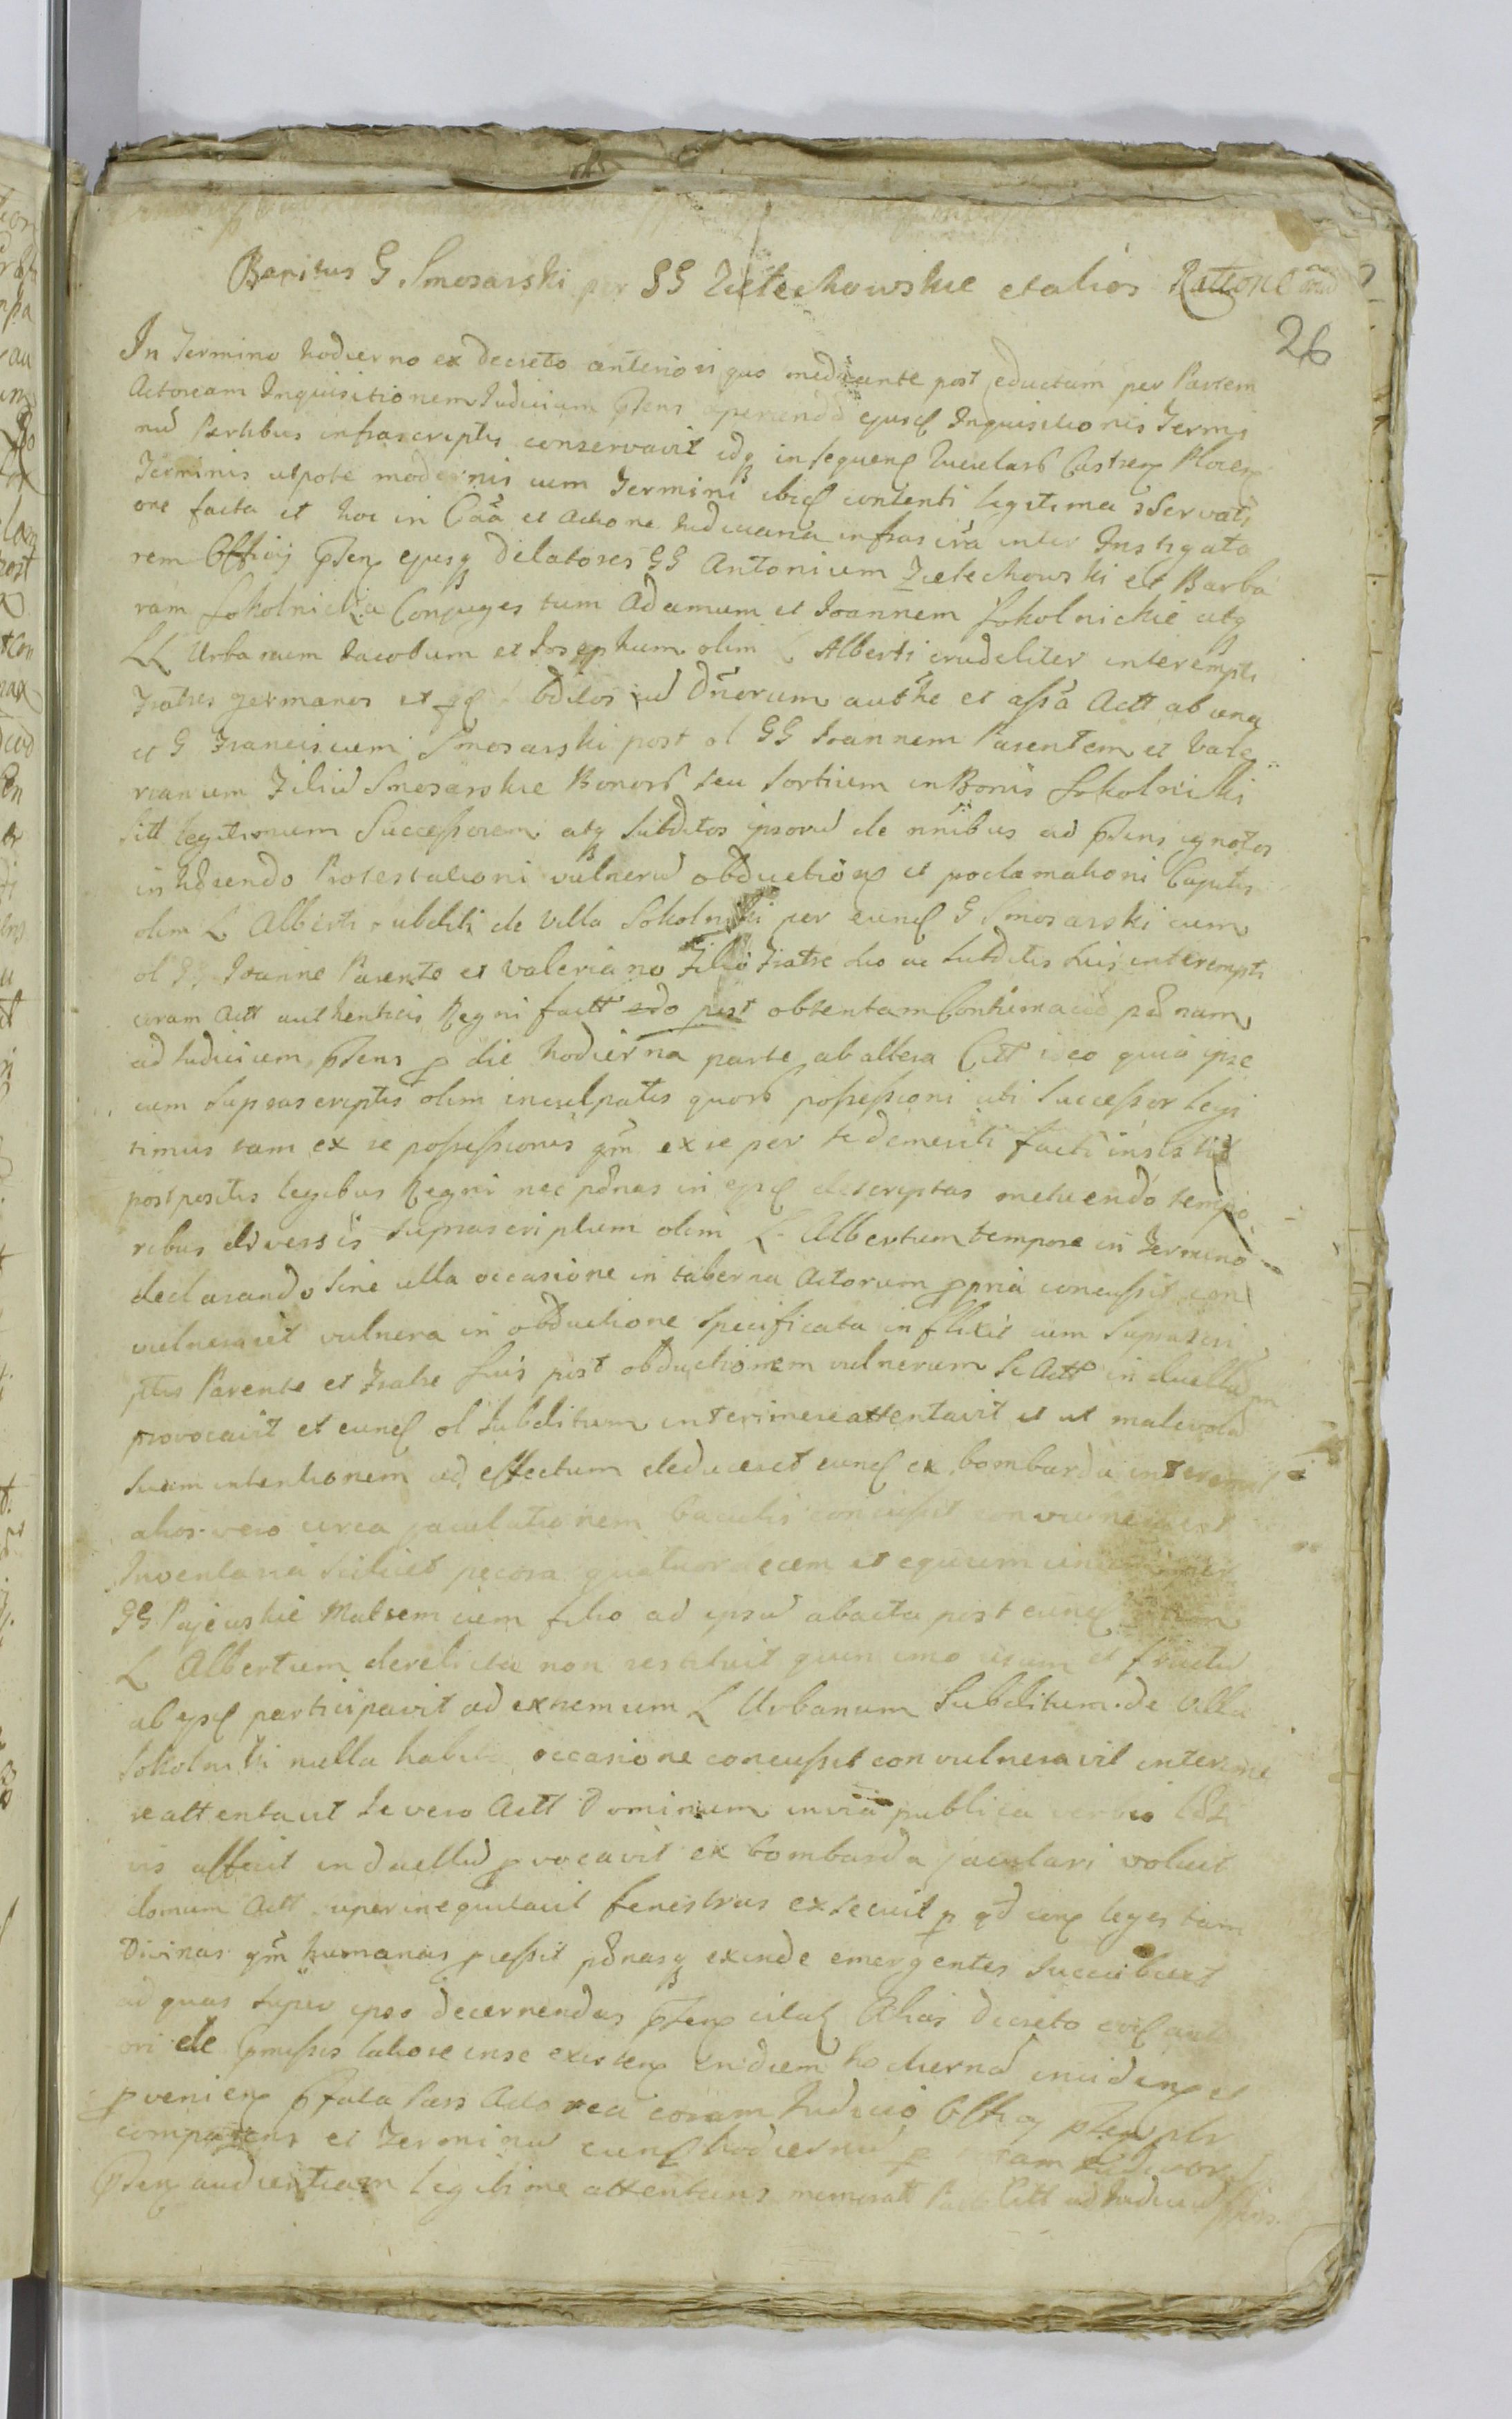 Banitus G Smosarski per GG Zielechowskie et alios Ratione
26
In Termino hodierno ex decreto anteriori quo mediante post eductam per Partem
Actoream Inquisitionem Judicium pñens aperiendae ejusd Inquisitionis Termi
nũ Partibus infrascriptis conservavit idq in sequenʒ Querelarʒ Castrenʒ Plocenʒ
Terminis utpote modernis cum Termini ibid contenti legitima observati
one facta et hoc in Cãa et Actione Judiciaria infrascrã inter Instigato
rem Officij pñen ejusq Delatores GG Antonium Zielechowski et Barba
ram Sokolnickie Conjuges tum Adamum et Joannem Sokolnickie atq
LL Urbanum Jacobum et Josephum olim L Alberti crudeliter interempti
Fratres germanos et subditos Dñorum authe et assa Actt ab una
et G Franciscum Smosarski post ol GG Joannem Parentem et Vale
rianum Filiũ Smosarskie Bonorʒ seu Sortium in Bonis Sokolniki
Sitt legitimum Successorem atq Subditos ipsorũ de nñibus ad pñens ignotos
inhærendo Protestationi vulnerũ obductioni et proclamationi Capitis
olim L Alberti subditi de Villa Sokolniki per eund G Smosarski cum
ol GG Joanne Parente et Valeriano Filio Fratre suo ac Subditis suis interempti
coram Actt authenticis Regni factt post obtentam Contumaciæ pænam
ad Judicium pñens p die hodierna parte ab altera Citt ideo quia ipse
cum suprascriptis olim inculpatis quorʒ possessioni uti Successor legi
timus tam ex re possessionis qm ex re per se demeriti facti insistit
postpositis legibus Regni nec pænas in ejsd descriptas metuendo tempo
ribus diversis suprascriptum olim L Albertum tempore in Termino
declarando sine ulla occasione in taberna Actorum ppria concussit con
vulneravit vulnera in obductione specificata inflixit cum suprascri
ptis Parente et Fratre suis post obductionem vulnerum se Actt in duellũ
provocavit et eund ol subditum interimere attentavit et ut malevolã
suam intentionem ad effectum deduceret eund ex bombarda interemit
alios vero circa jaculationem baculis concussit convulneravit
Inventaria scilicet pecora quatuordecem et equum unum per
GG Pajewskie Matrem cum filio ad ipsũ abacta post eund olim
L Albertum derelicta non restituit quin imo usum et fructũ
ab ejsd participavit ad extremum L Urbanum Subditum de Villa
Sokolniki nulla habita occasione concussit convulneravit interime
re attentavit se vero Actt Dominum in via publica verbis læsi
vis affecit in duellũ pvocavit ex bombarda jaculari voluit
domum Actt superinequitavit fenestras exsecuit p qd leges tam
Divinas qm humanas pressit pænasq exinde emergentes succubuit
ad quas super ipso decernendas pñen citat Alias Decreto anteri
ori de pmissis latiore in se existen In diem hodiernã inciden et
pvenien pfata Pars Actorea coram Judicio Officij pñen plr
comparens et Terminũ eund hodiernũ p
pñen audientiam legitime attentans memoratt Citt ad Judiciũ